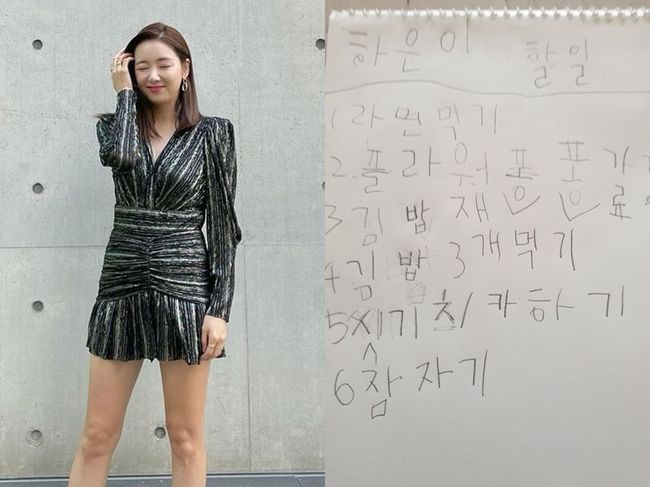 하은이 할일
1 라면먹기
2. 플라워
3 김밥
4 김밥 3개먹기
5 치카하기
6 잠자기